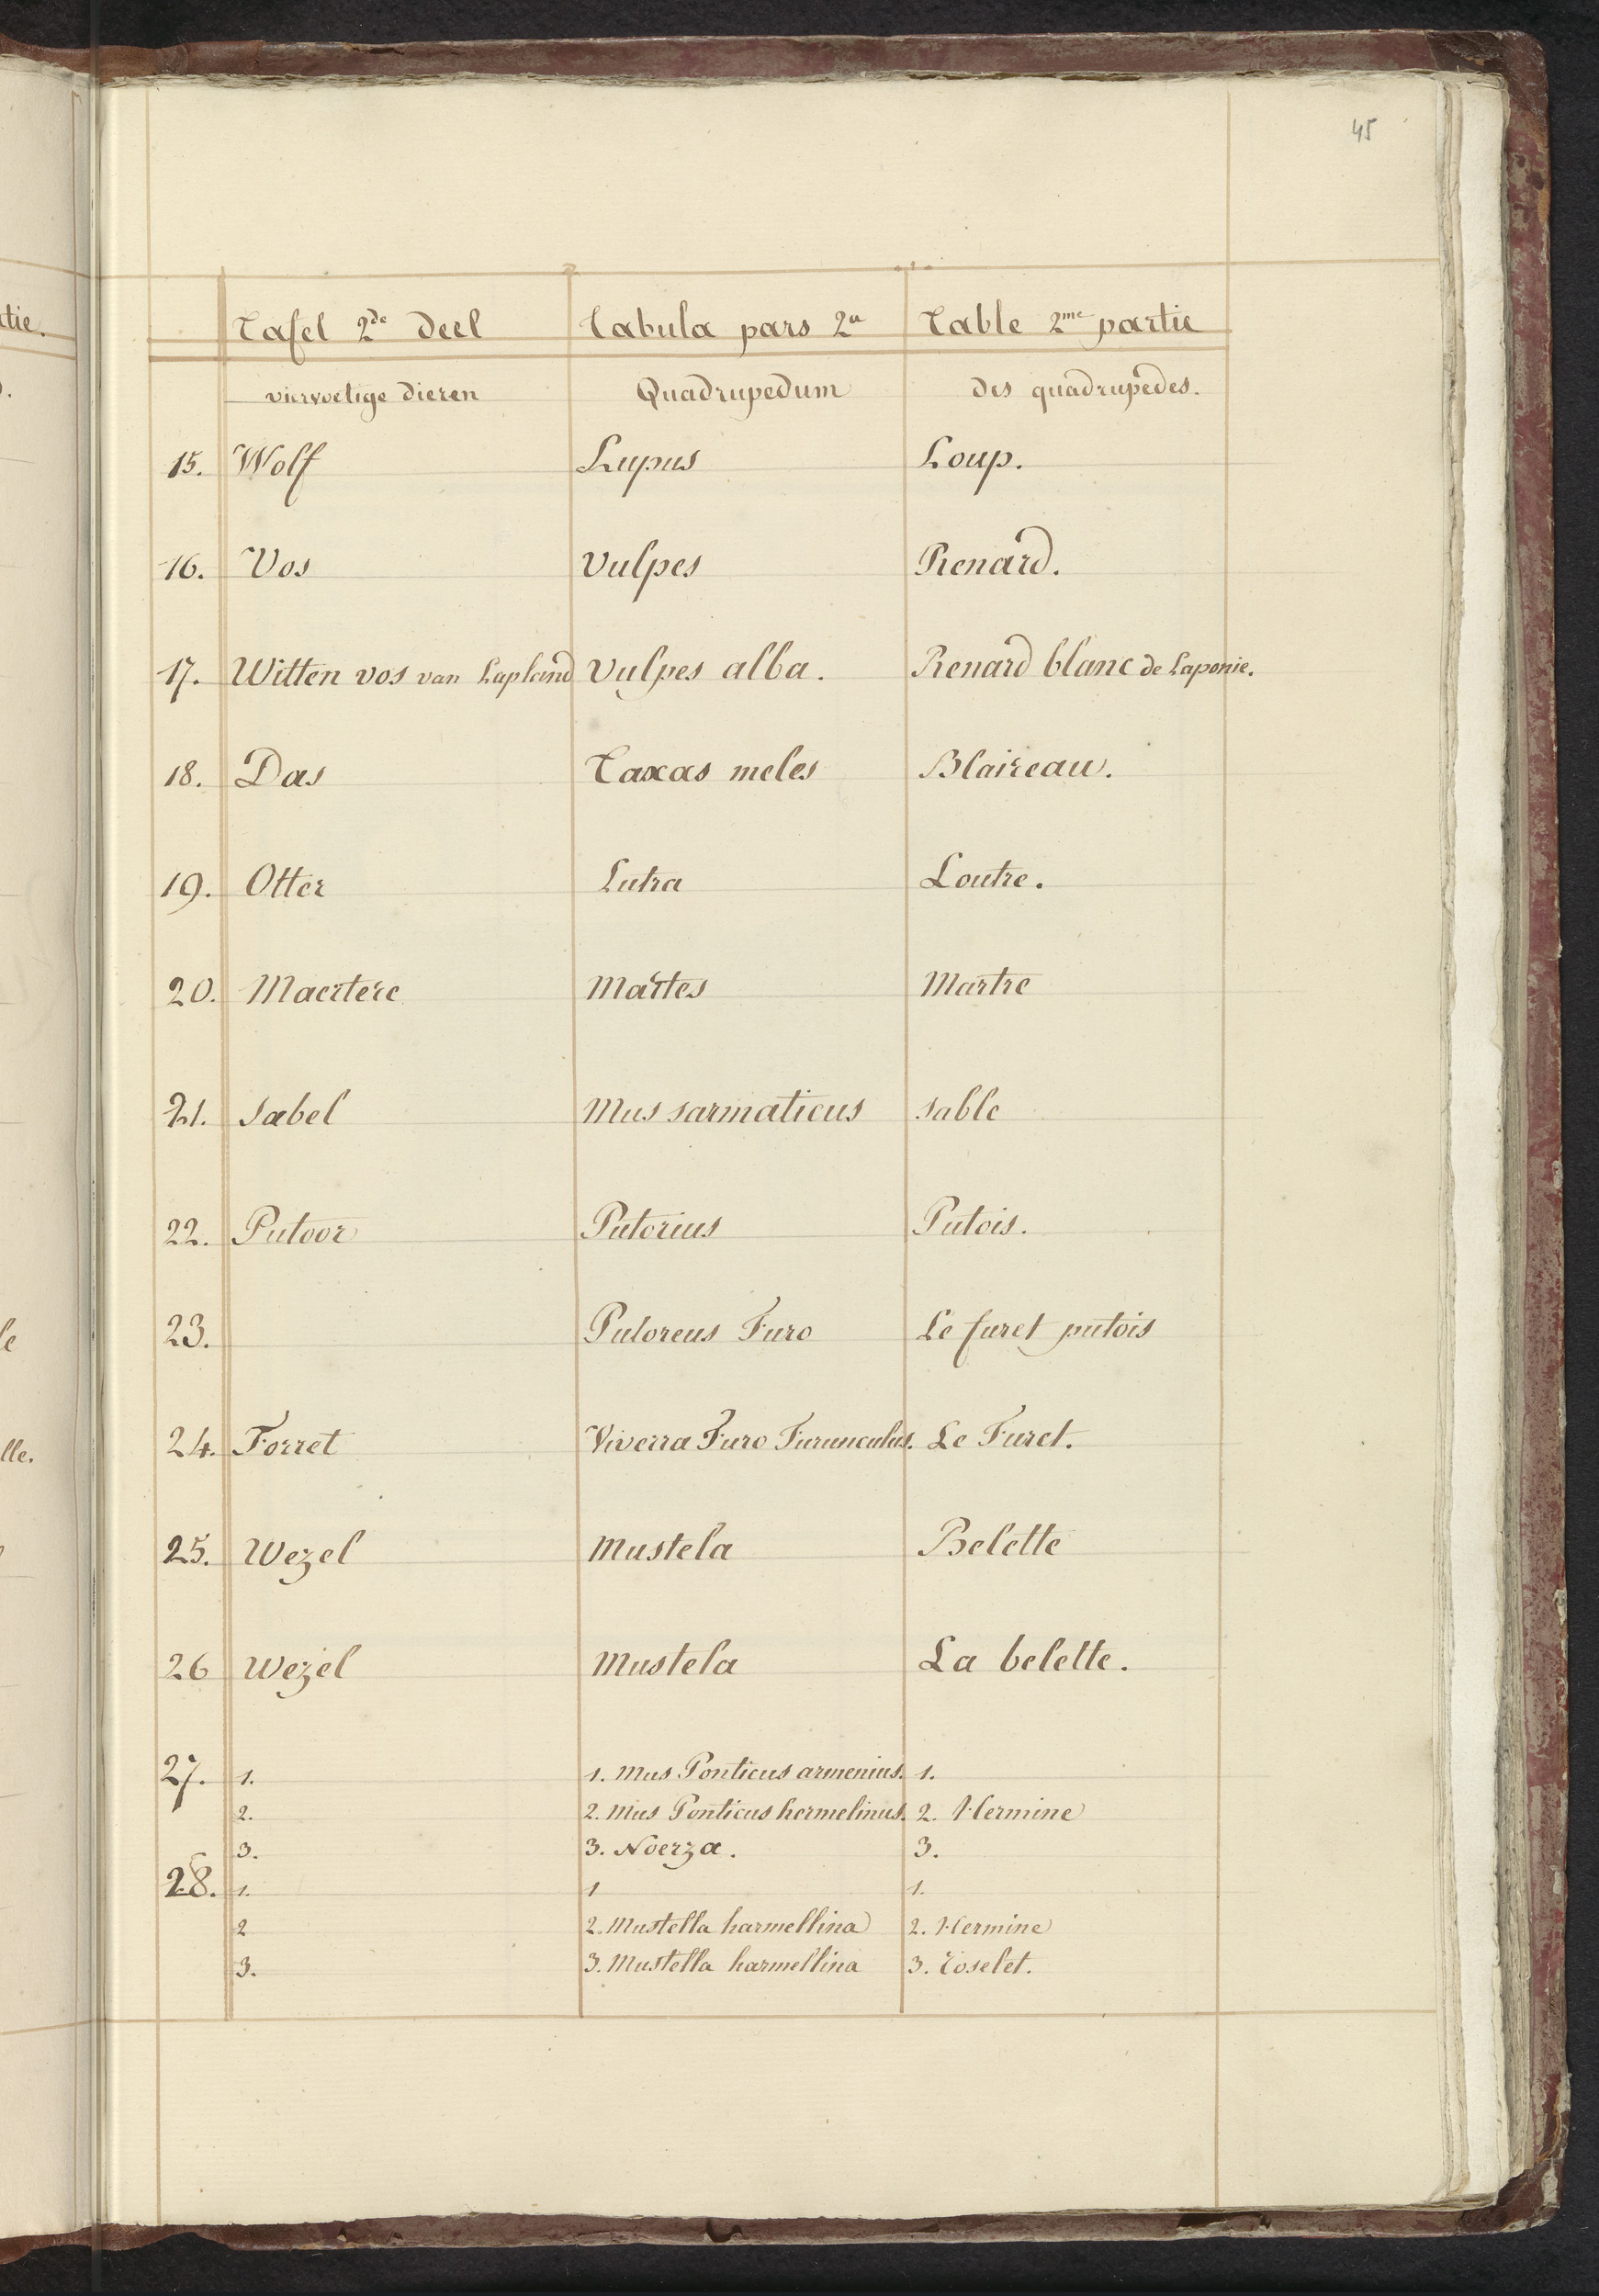 45
tie.
Tafel 2de deel Tabula pars 2a Table 2me partie
viervoetige dieren Quadrupedum des quadrupèdes.
15. Wolf Lupus Loup.
16. Vos Vulpes Renard.
17. Witten vos van Lapland Vulpes alba. Renard blanc de Laponie.
18. Das Taxas meles Blaireau.
19. Otter Lutra Loutre.
20. Maertere Martes Martre
21. Sabel Mus sarmaticus Sable
22. Putoor Putorius Putois.
23. Putoreus Furo Le furet putois
24. Forret Viverra Furo Furunculus. Le Furet.
25. Wezel Mustela Belette
26 Wezel Mustela La belette.
27. 1. 1. Mus Ponticus armenius. 1.
2. 2. Mus Ponticus hermelinus. 2. Hermine
3. 3. Noerza. 3.
28. 1. 1 1.
2 2. Mustella harmellina 2. Hermine
3. 3. Mustella harmellina 3. Roselet.
le
lle.